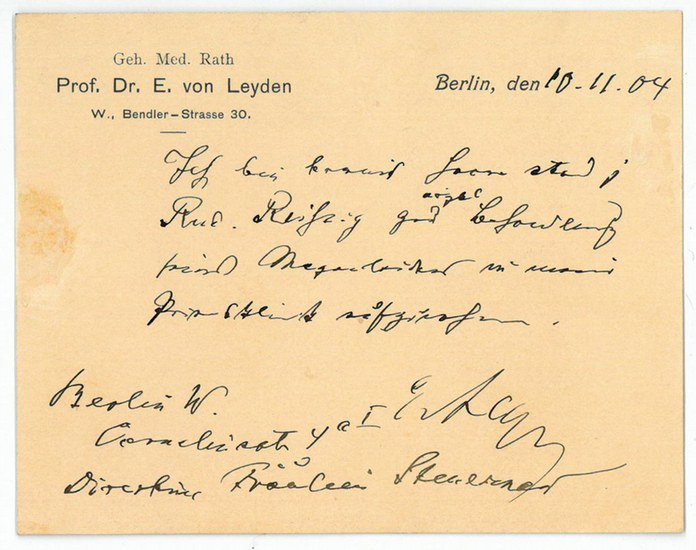 Geh. Med. Rath
Prof. Dr. E. von Leyden
W., Bendler-Strasse 30.
Berlin, den 10.11.04
Ich bin bereit Herrn stud j
Rud. Reiszig zur
ärztl
Behandlung
seines Magenleidens in meine
Privatklinik aufzunehmen.
Berlin W.
Corneliusstr 4a I
Direktrice Fräulein